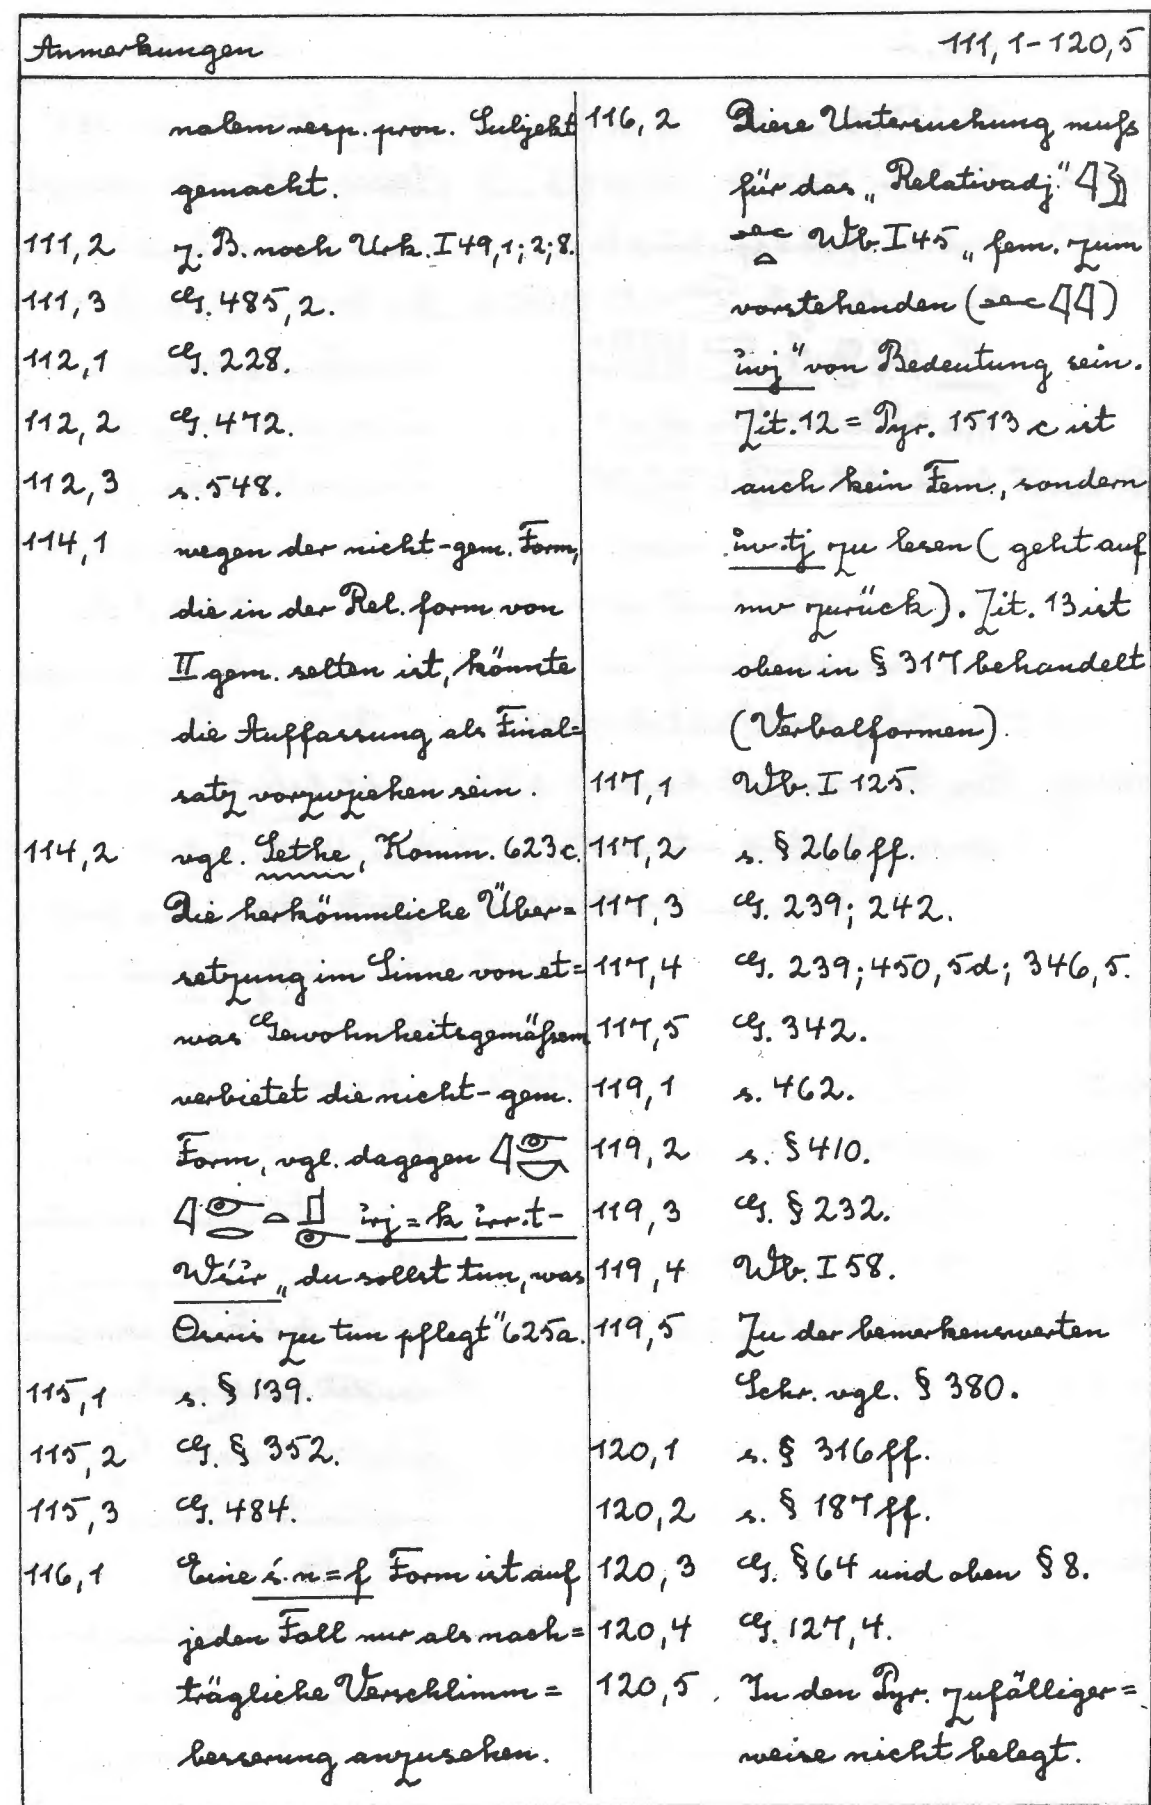 Anmerkungen 111,1-120,5
nalem resp. pron. Subjekt
gemacht.
111,2 z.B. noch Urk. I 49,1; 2; 8.
111,3 G. 485,2.
112,1 G. 228.
112,2 G. 472.
112,3 s. 548.
114,1 wegen der nicht-gem. Form,
die in der Rel. form von
II gem. selten ist, könnte
die Auffassung als Final=
satz vorzuziehen sein.
114,2 vgl. Sethe, Komm. 623c.
Die herkömmliche Über=
setzung im Sinne von et=
was Gewohnheitsgemäßem
verbietet die nicht-gem.
Form, vgl. dagegen 𓇋𓁹𓎡
𓇋𓁹𓂋𓏏𓊨𓁹 irj=k irr.t-
Wśir „du sollst tun, was
Osiris zu tun pflegt" 625a.
115,1 s. § 139.
115,2 G. § 352.
115,3 G. 484.
116,1 Eine ś.n=f Form ist auf
jeden Fall nur als nach=
trägliche Verschlimm=
besserung anzusehen.
116,2 Diese Untersuchung muß
für das „Relativadj."
Wb. I 45 „fem. zum
vorstehenden (𓂜𓇋𓇋)
iwj" von Bedeutung sein.
Zit. 12 = Pyr. 1513c ist
auch kein Fem., sondern
iw.tj zu lesen (geht auf
mw zurück). Zit. 13 ist
oben in § 317 behandelt
(Verbalformen).
117,1 Wb. I 125.
117,2 s. § 266 ff.
117,3 G. 239; 242.
117,4 G. 239; 450,5d; 346,5.
117,5 G. 342.
119,1 s. 462.
119,2 s. § 410.
119,3 G. § 232.
119,4 Wb. I 58.
119,5 Zu der bemerkenswerten
Schr. vgl. § 380.
120,1 s. § 316 ff.
120,2 s. § 187 ff.
120,3 G. § 64 und oben § 8.
120,4 G. 127,4.
120,5 In den Pyr. zufälliger=
weise nicht belegt.